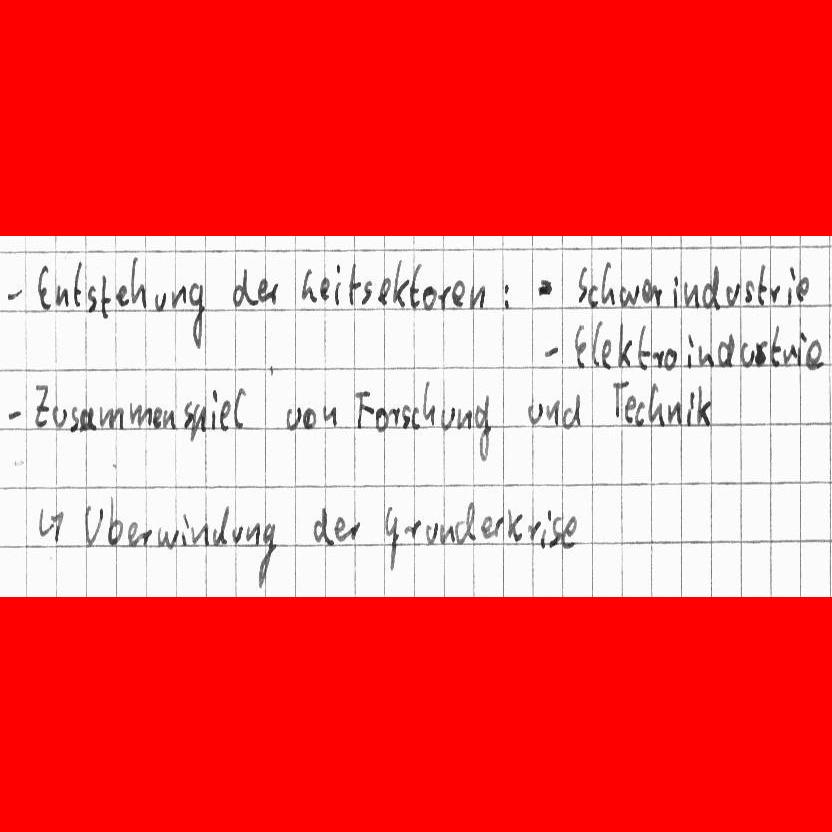 - Entstehung der Leitsektoren: - Schwerindustrie
- Elektroindustrie
- Zusammenspiel von Forschung und Technik
↳ Überwindung der Gründerkrise